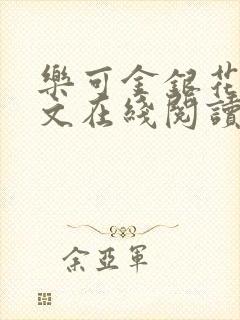 樂可金銀花
文在綫閱讀
余亞軍